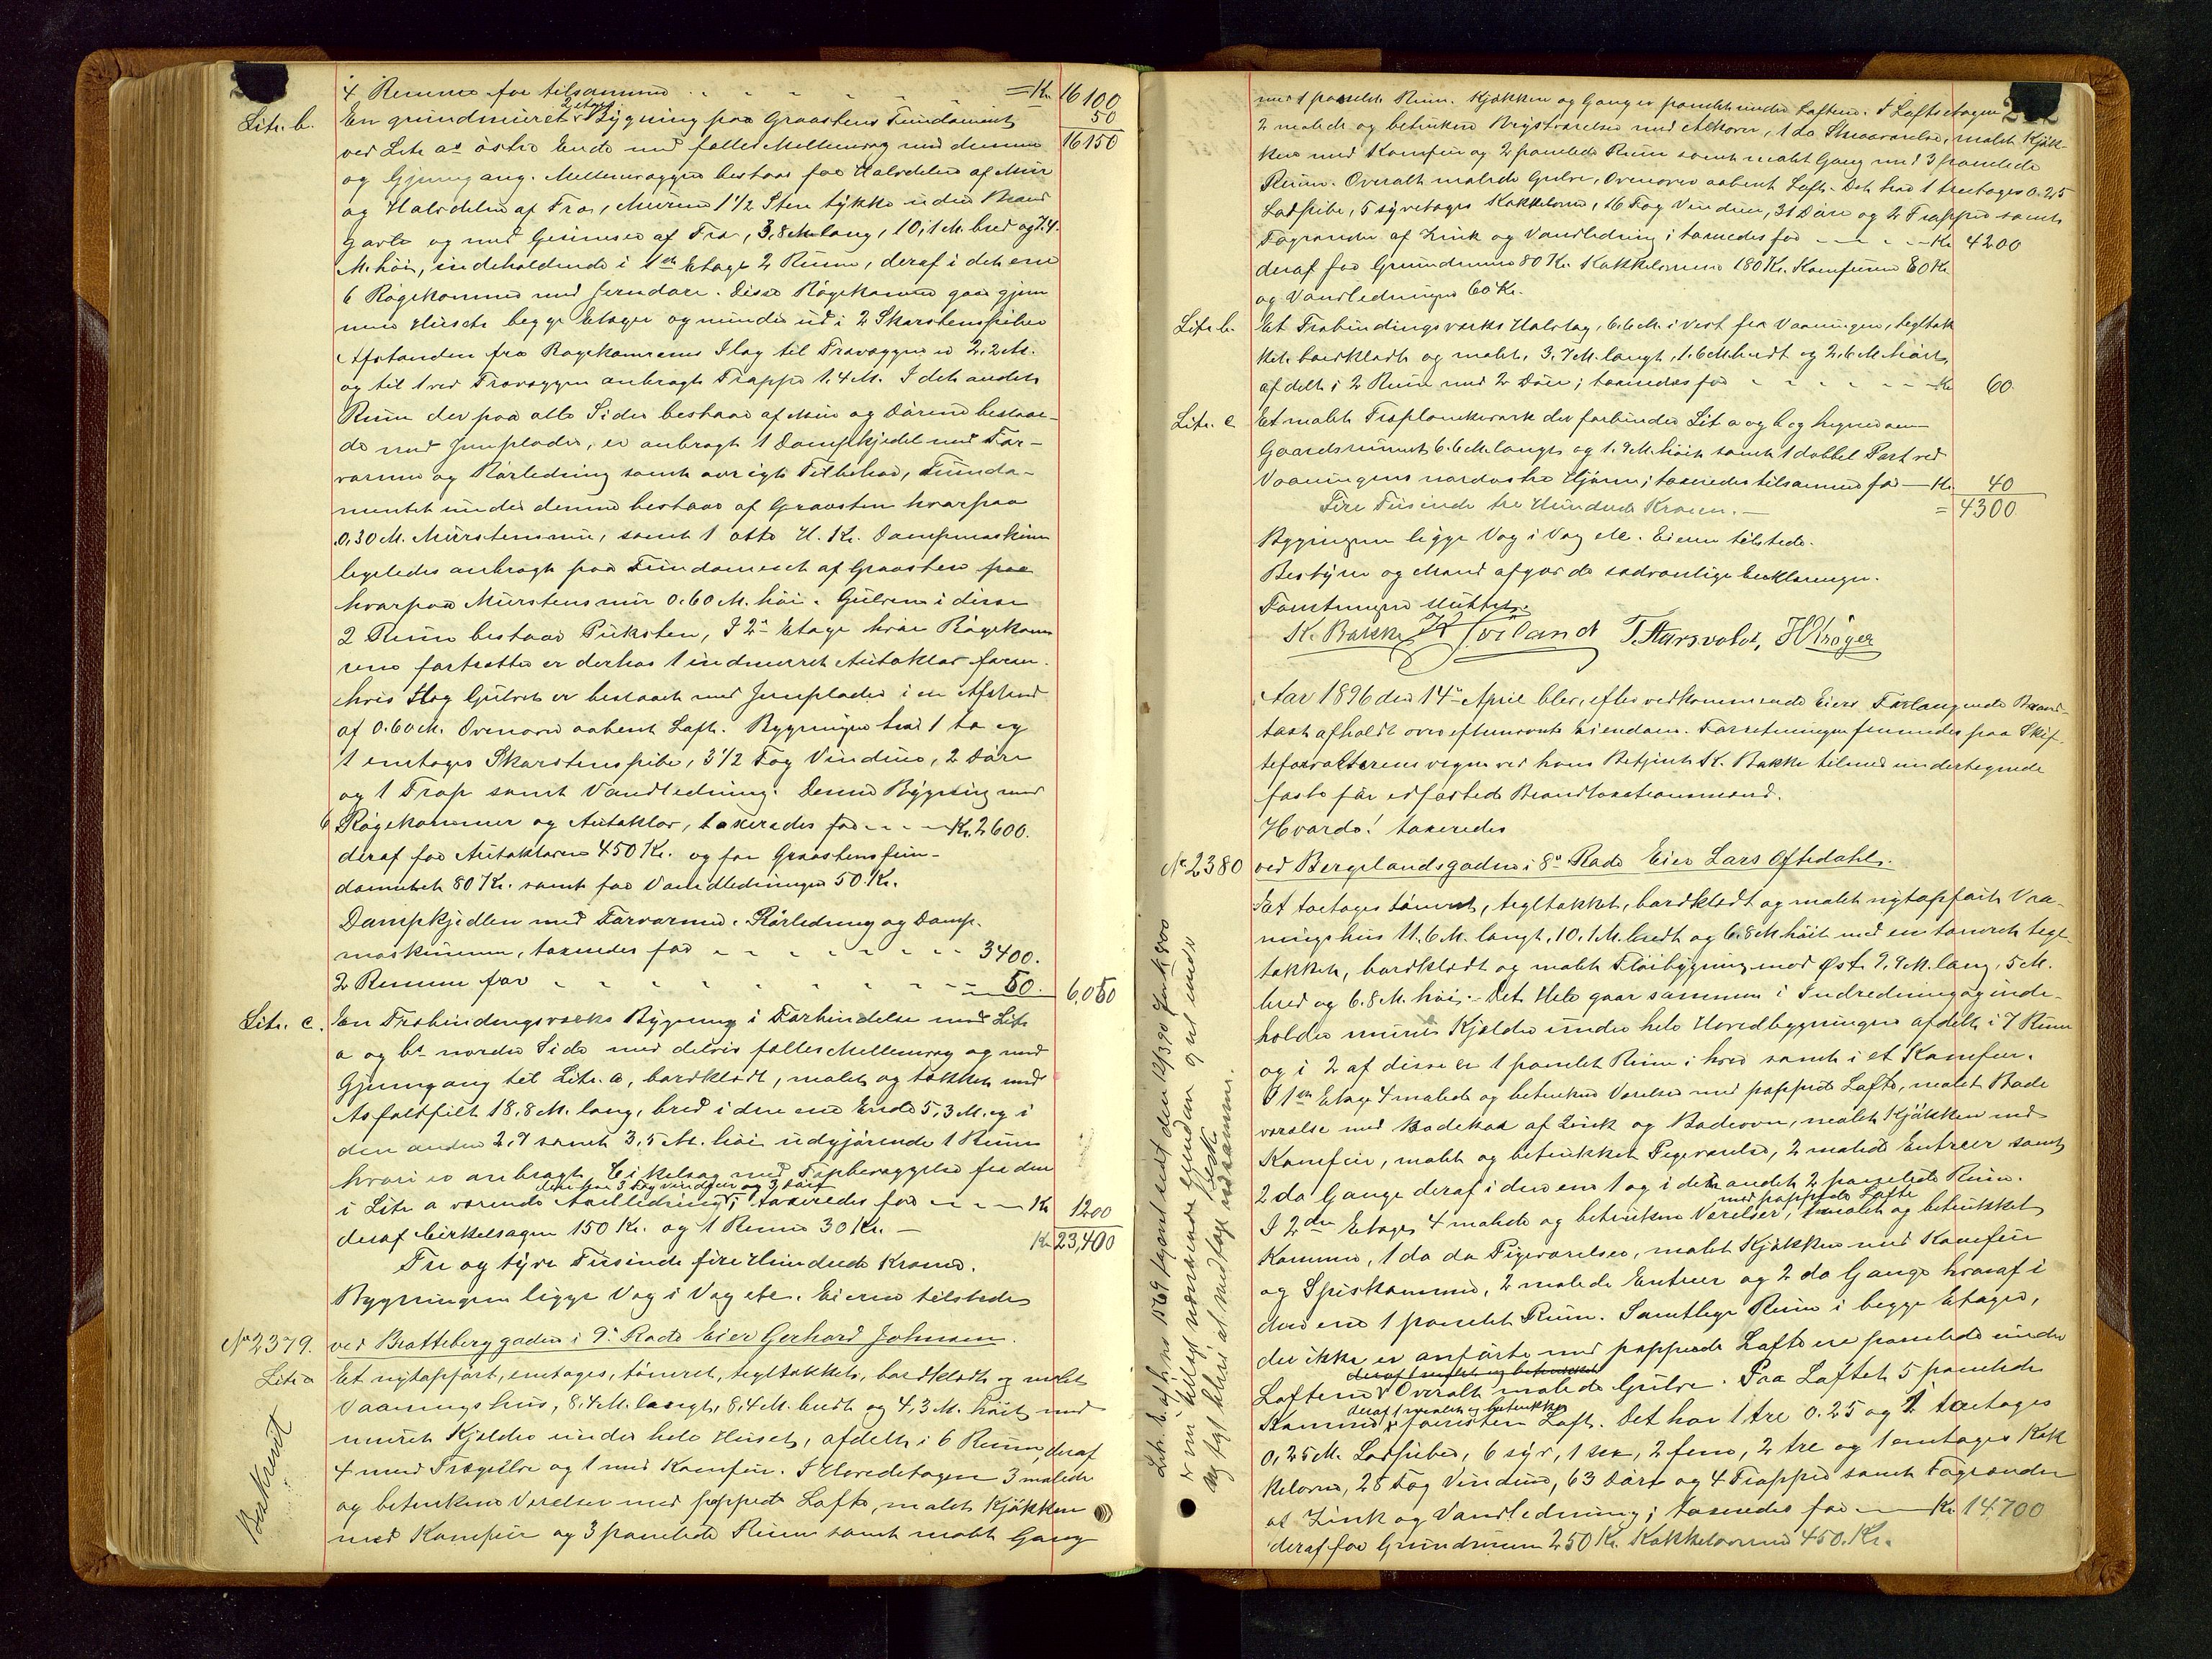 4 Remme for tilsammen = Kr. 16100
50
16150
Litr. b. En grundmuret 2 etages Bygning paa Graastens Fundament
ved Litr a's østre Ende med fælles Mellemvæg med denne
og Gjennemgang. Mellemvæggen bestaar for Halvdelen af Mur
og Halvdelen af Træ, Murene 1 1/2 Sten tykke uden Brand
gavle og med Gesimser af Træ, 3,8 M. lang, 10,1 M. bred og 7,4
M. høi, indeholdende i 1ste Etage 2 Rum, deraf i det ene
6 Røgekammer med Jerndøre. Disse Røgekammer gaar gjen
nem Husets begge Etager og munder ud i 2 Skorstenspiber
Afstanden fra Røgekamrenes Ilag til Trævæggen er 2,2 M.
og til 1 ved Trævæggen anbragt Trappe 1,4 M. I det andet
Rum der paa alle Sider bestaar af Mur og Dørene beslaae-
de med Jernplader, er anbragt 1 Dampkjedel med For-
varmer og Rørledning samt øvrigt Tilbehør, Funda-
mentet under denne bestaar af Graasten hvorpaa
0,30 M. Murstensmur, samt 1 otte H. Kr. Dampmaskine
ligeledes anbragt paa Fundament af Graasten paa
hvorpaa Murstensmur 0.60 M. høi. Gulvene i disse
2 Rum bestaar Puksten, I 2den Etage hvor Røgekam
rene fortsætter er derhos 1 indmuret Autoklav foran
hvis Ilag Gulvet er beslaaet med Jernplader i en Afstand
af 0.60 M. Ovenover aabent Loft. Bygningen har 1 to og
1 enetages Skorstenspibe, 3 1/2 Fag Vinduer, 2 Døre
og 1 Trap samt Vandledning. Denne Bygning med
6 Røgekammer og Autoklav, taxeredes for Kr. 2600.
deraf for Autoklaven 450 Kr. og for Graastensfun-
damentet 80 Kr. samt for Vandledningen 50 Kr.
Dampkjedlen med Forvarmer, Rørledning og Damp-
maskinen, taxeredes for 3400.
2 Remme for 50. 6,050
Litr. c. En Træbindingsværks Bygning i Forbindelse med Litr
a og b's nordre Side med delvis fælles Mellemvæg og med
Gjennemgang til Litr. a, bordklædt, malet og tækket med
Asfaltfilt 18,8 M. lang, bred i den ene Ende 5,3 M. og i
den anden 2,9 samt 3,5 M. høi udgjørende 1 Rum
hvori er anbragt Cirkelsag med Fripbevægelse fra den
den har 3 Fag Vinduer og 3 Døre
i Litr a værende Axelledning; taxeredes for Kr. 1200
deraf Cirkelsagen 150 Kr. og 1 Remme 30 Kr. Kr. 23,400
Tre og tyve Tusinde fire Hundrede Kroner.
Bygningen ligge Væg i Væg etc. Eieren tilstede
No 2379. ved Bratteberggaden i 9de Rode Eier Gerhard Johnsen.
Litr a Et nytopført, enetages, tømret, tegltækket, bordklædt og malet
Vaaningshus, 8,4 M. langt, 8,4 M. bredt og 4,3 M. høit, med
muret Kjelder under hele Huset, afdelt i 6 Rum, deraf
4 med Trægulve og 1 med Komfur. I Hovedetagen 3 malede
og betrukne Værelser med pappede Lofte, malet Kjøkken
med Komfur og 3 panelede Rum samt malet Gang
Beskrevet
med 1 panelet Rum. Kjøkken og Gang er panelet under Loftene. I Loftsetagen
2 malede og betrukne Kvistværelser med Alkover, 1 do Skraaværelse, malet Kjøk-
ken med Komfur og 2 panelede Rum samt malet Gang med 3 panelede
Rum. Overalt malede Gulve, Ovenover aabent Loft. Det har 1 treetages 0.25
Lodpibe, 5 syvetages Kakkelovne, 16 Fag Vinduer, 31 Døre og 2 Trapper samt
Tagrender af Zink og Vandledning; taxeredes for Kr. 4200
deraf for Grundmuren 80 Kr. Kakkelovnene 180 Kr. Komfurene 80 Kr.
og Vandledningen 60 Kr.
Litr. b. Et Træbindingsværks Halvtag, 6.6 M. i vest fra Vaaningen, tegltæk
ket, bordklædt og malet, 3.7 M. langt, 1.6 M. bredt og 2.6 M. høit,
afdelt i 2 Rum med 2 Døre; taxeredes for Kr. 60
Litr. c Et malet Træplankeværk der forbinder Lit a og b og hegner om
Gaardsrummet 6.6 M. langt og 1.9 M. høit samt 1 dobbel Port ved
Vaaningens nordøstre Hjørne; taxeredes tilsammen for Kr. 40
Fire Tusinde tre Hundrede Kroner. = 4300
Bygningen ligge Væg i Væg etc. Eieren tilstede.
Bestyrer og Mænd afgav de sædvanlige Erklæringer.
Forretningen sluttet.
K. Bakke T. Aarsvold, H Krøger
Aar 1896 den 14de April blev, efter vedkommende Eiers Forlangende Brand-
taxt afholdt over eftennævnte Eiendom. Forretningen fremmedes paa Skif-
teforvalterens vegne ved hans Betjent K. Bakke tilmed undertegnede
faste før edfæstede Brandtaxtionsmænd.
Hvorda! taxeredes
No 2380 ved Bergelandsgaden i 8de Rode Eier Lars Oftedahl.
Et toetages tømret, tegltækket, bordklædt og malet nytopført Vaa-
ningshus 11.6 M. langt, 10.1 M. bredt og 6.8 M. høit med en tømret tegl-
tækket, bordklædt og malet Fløibygning mod Øst 9,9 M. lang, 5 M.
bred og 6.8 M. høi. Det Hele gaar sammen i Indredning og inde-
holder muret Kjelder under hele Hovedbygningen afdelt i 7 Rum
og i 2 af disse er 1 panelet Rum i hver samt i et Komfur.
I 1ste Etage 4 malede og betrukne Værelser med pappede Lofte, malet Bade
værelse med Badekar af Zink og Badeovn, malet Kjøkken med
Komfur, malet og betrukket Pigeværelse, 2 malede Entreer samt
2 do Gange deraf i den ene 1 og i det andet 2 panelede Rum.
med pappede Lofte
I 2den Etage 4 malede og betrukne Værelser, 1 malet og betrukket
Kammer, 1 do do Pigeværelse, malet Kjøkken med Komfur
og Spiskammer, 2 malede Entreer og 2 do Gange hvoraf i
den ene 1 panelet Rum. Samtlige Rum i begge Etager,
der ikke er anførte med pappede Lofte ere panelede under
deraf 1 malet og betrukket
Loftene. Overalt malede Gulve. Paa Loftet 5 panelede
deraf 1 malet og betrukket
Kammer, forresten Loft. Det har 1 tre 0.25 og 1 toetages
0,25 M. Lodpiber, 6 syv, 1 sex, 2 fem, 2 tre og 1 enetages Kak
kelovne, 28 Fag Vinduer, 63 Døre og 4 Trapper samt Tagrender
af Zink og Vandledning; taxeredes for Kr. 14700
deraf for Grundmuren 250 Kr. Kakkelovnene 450 Kr.
Litr. b. af No 1569 taxeret den 12/3 90 for Kr. 800
er nu tillagt nærværende Eiendom og vil under
og tagt blive at medtage i dennes